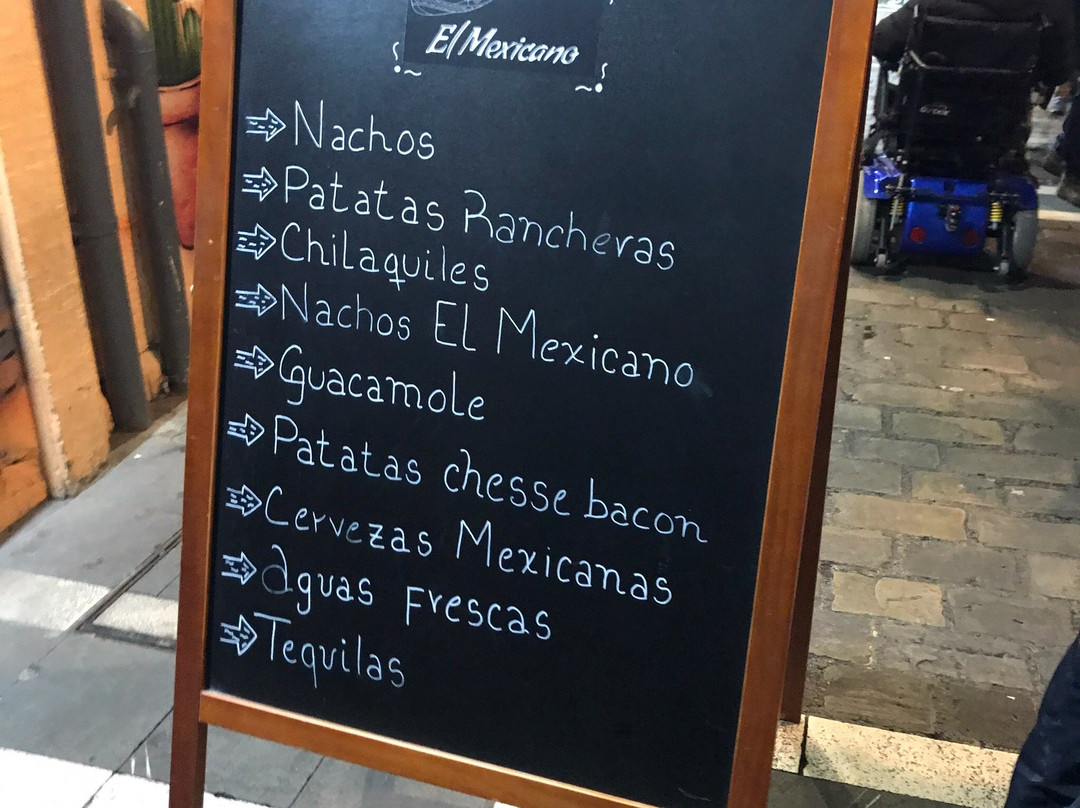 El Mexicano
Nachos
Patatas Rancheras
Chilaquiles
Nachos El Mexicano
Guacamole
Patatas chesse bacon
Cervezas Mexicanas
Aguas Frescas
Tequilas